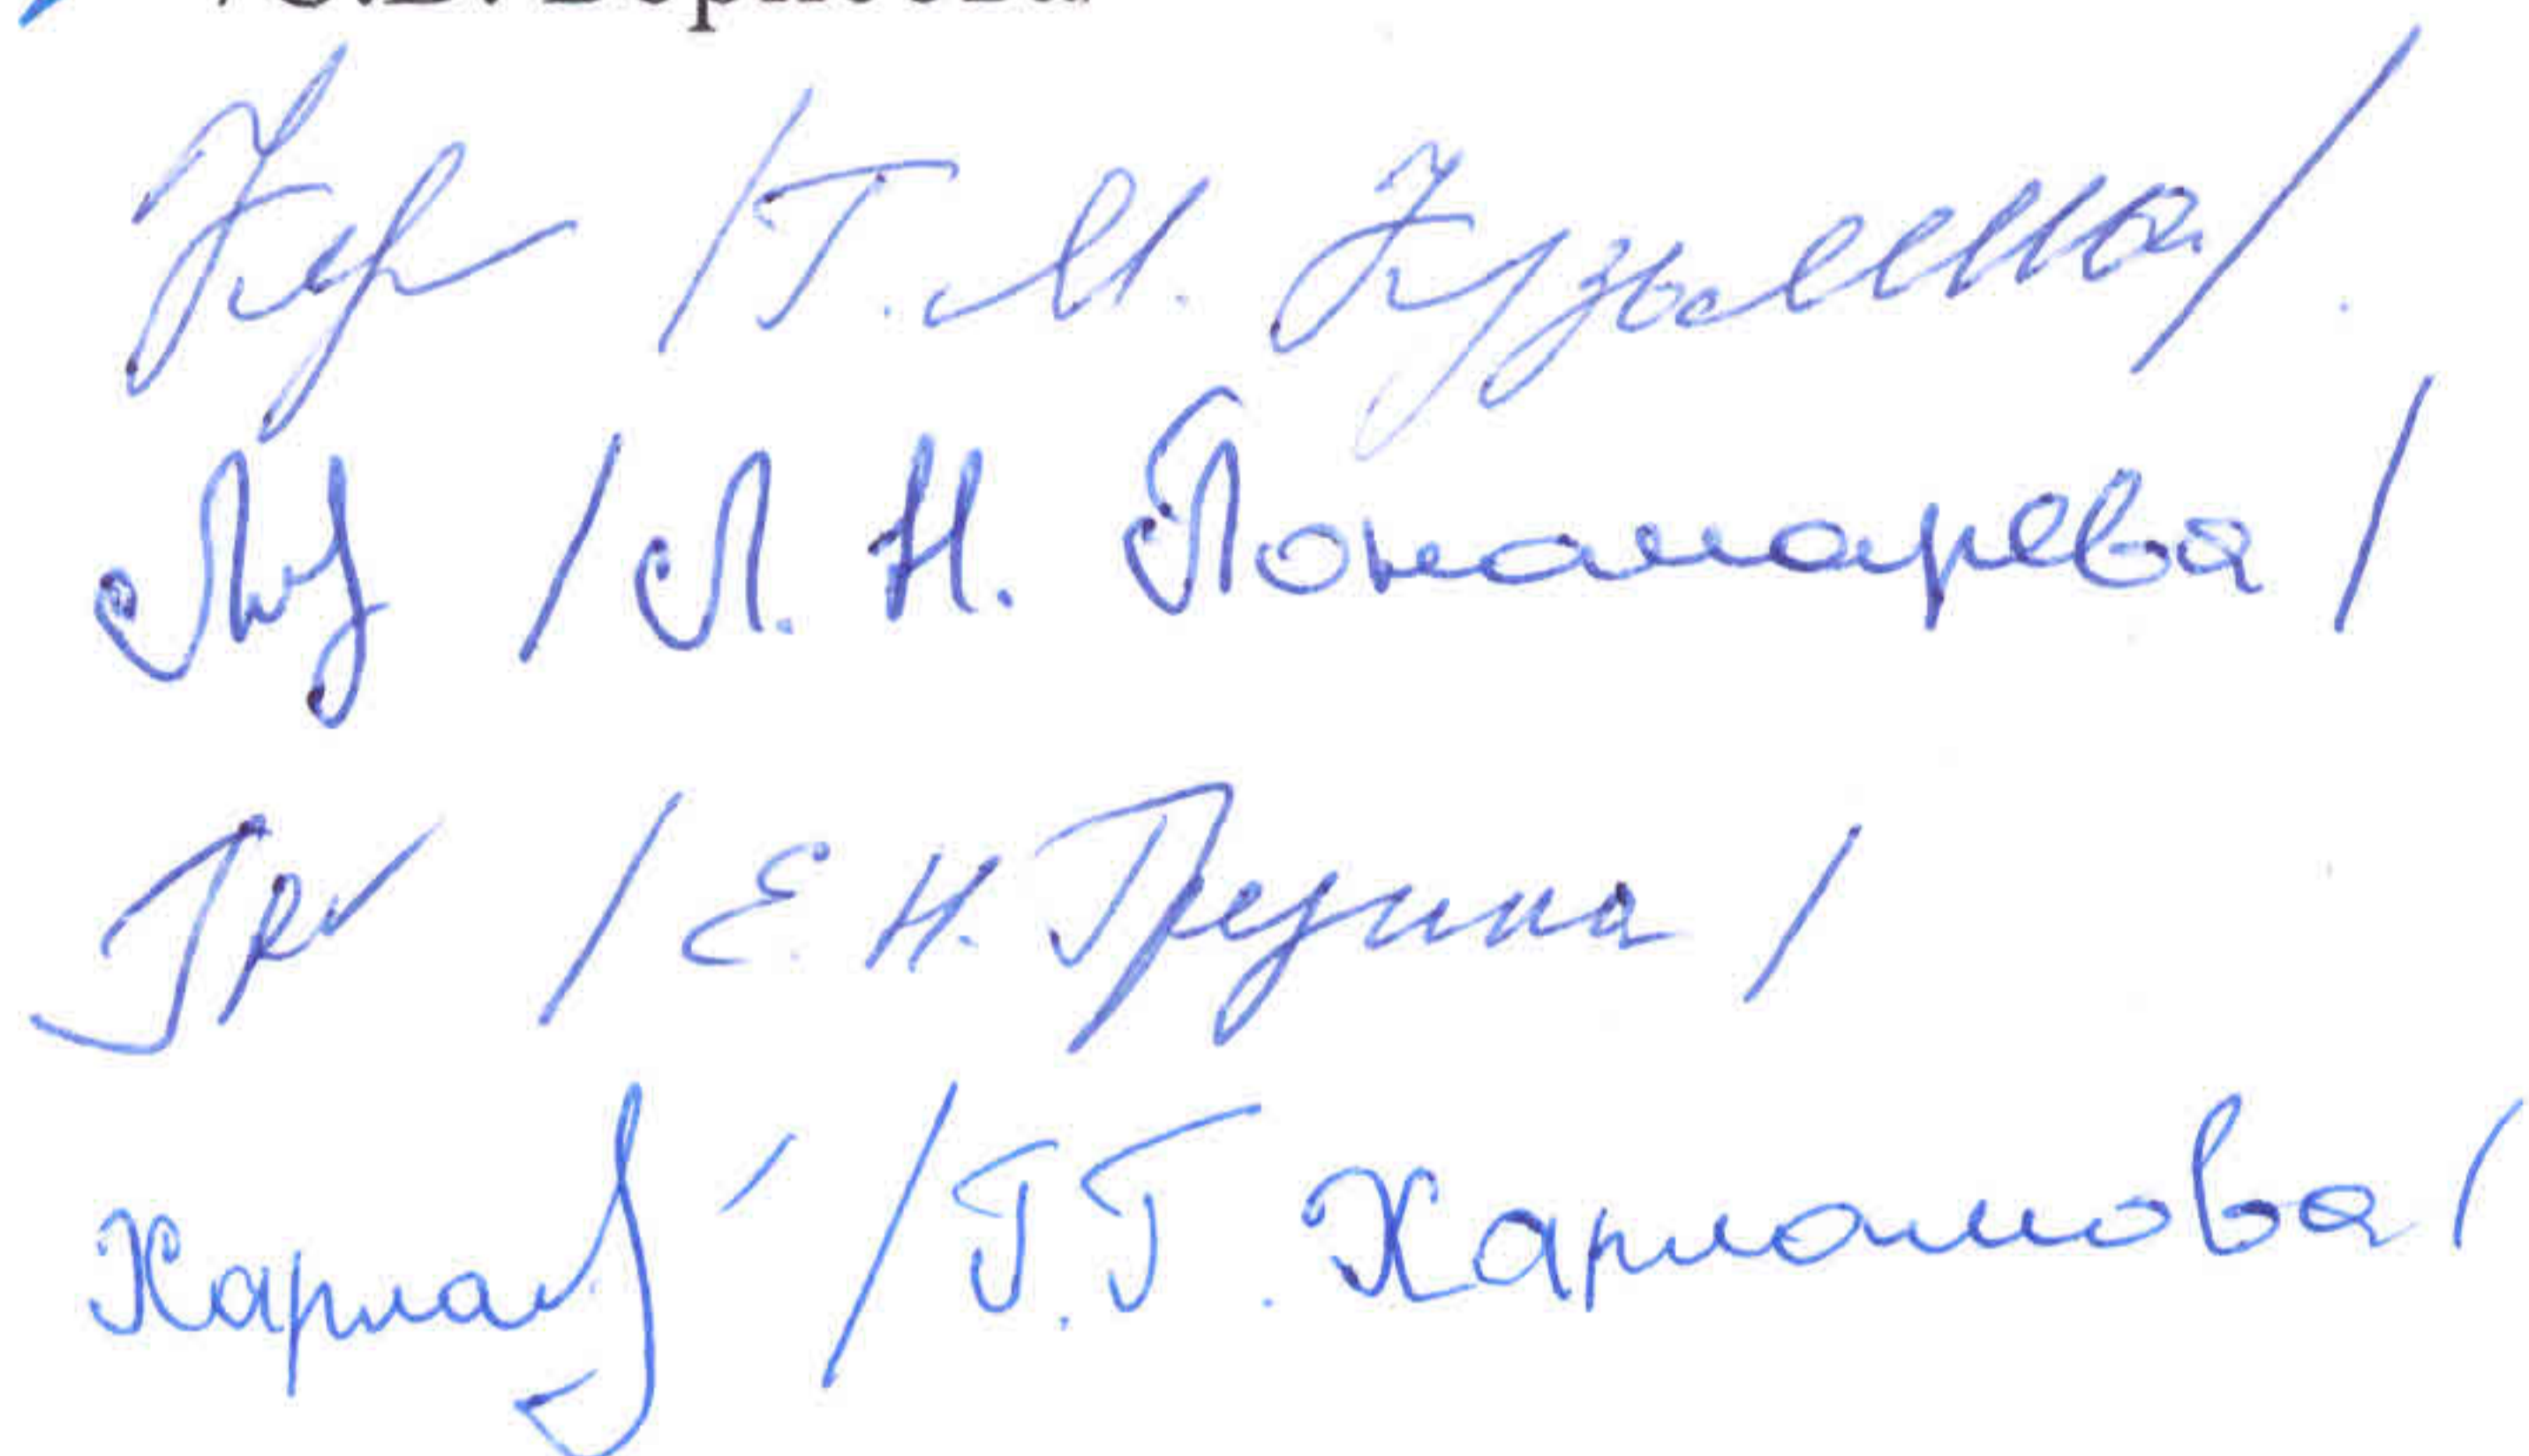 /Т.М. Кузьмина/
/Л.Н. Пономарева/
/Е.Н. Грезина/
Харлам /Г.Г. Харламова/